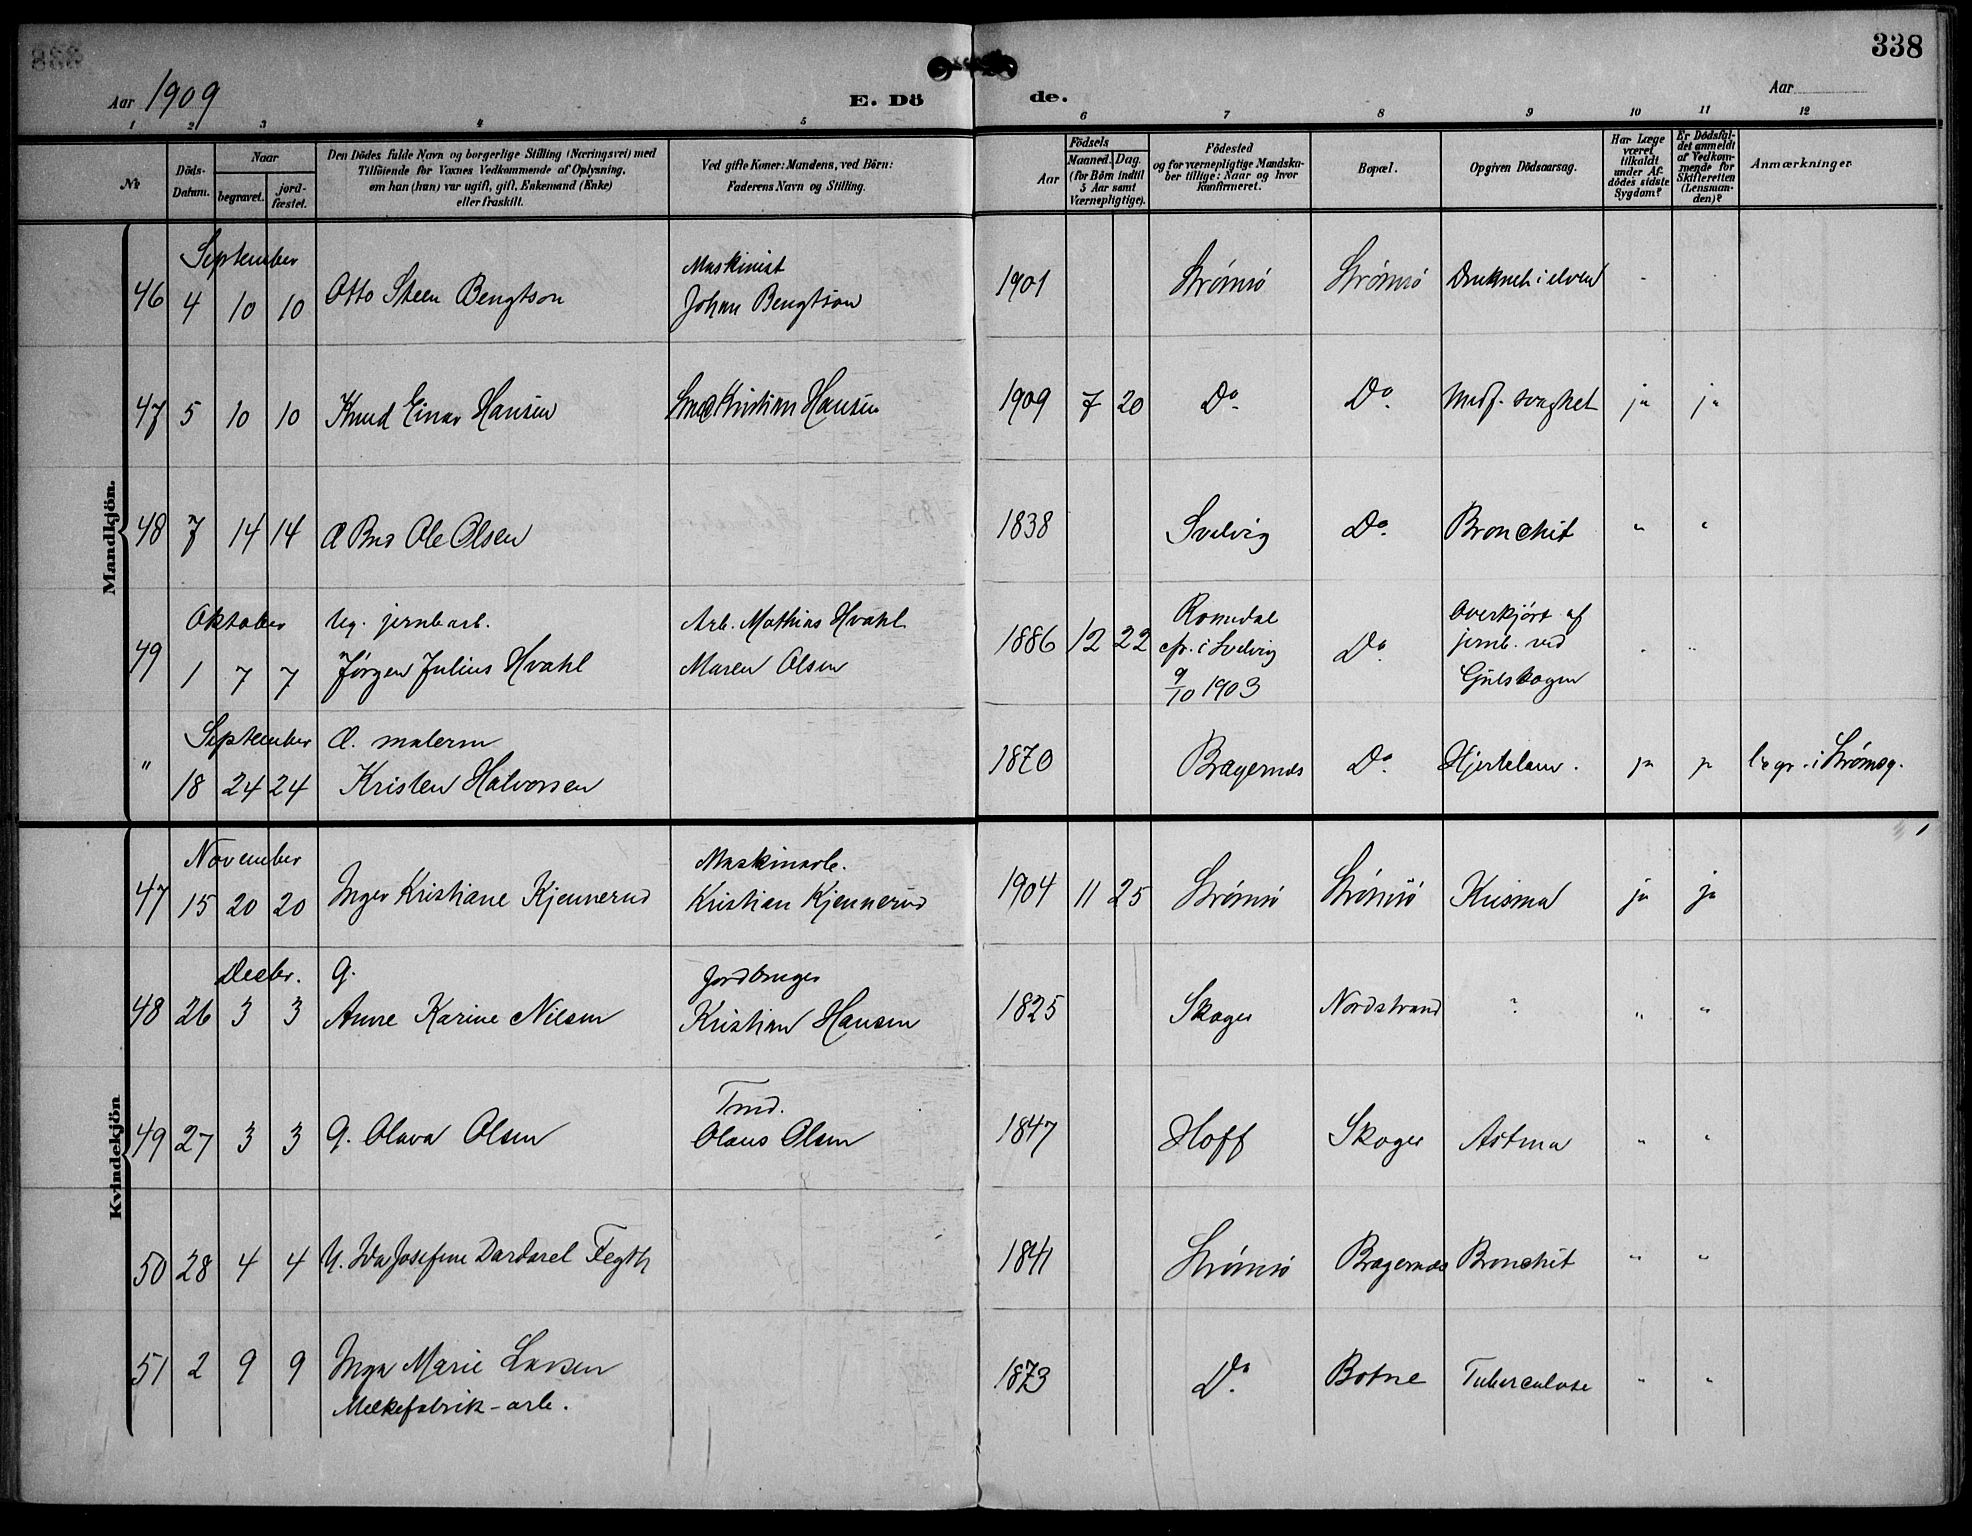 338
Aar 1909 E. Dö de. Aar
1 2 3 4 5 6 7 8 9 10 11 12
№
Döds-Datum.
Naar
begravet.
jord-fæstet.
Den Dödes fulde Navn og borgerlige Stilling (Næringsvei) med
Tilföiende for Voxnes Vedkommende af Oplysning,
om han (hun) var ugift, gift, Enkemand (Enke)
eller fraskilt.
Ved gifte Koner: Mandens, ved Börn:
Faderens Navn og Stilling.
Födsels
Aar
Maaned. Dag.
(for Börn indtil
5 Aar samt
Værnepligtige).
Födested
og for værnepligtige Mandska-
ber tillige: Naar og hvor
konfirmeret.
Bopæl.
Opgiven Dödsaarsag.
Har Læge
været
tilkaldt
under Af-
dödes sidste
Sygdom?
Er Dödsfal-
det anmeldt
af Vedkom-
mende for
Skifteretten
(Lensman-
den)?
Anmærkninger
Mandkjön.
September Maskinist
46 4 10 10 Otto Steen Bengtson Johan Bengtson 1901 Strømsö Strømsö Druknet i elven
47 5 10 10 Knud Einar Hansen Smed Kristian Hansen 1909 7 20 Do. Do. Medf. svaghet ja ja
48 7 14 14 Ole Olsen 1838 Svelvig Do. Bronchit " "
Oktober Ug. jernb arb. Arb. Mathias Hvahl Romsdal Overkjørt af
49 1 7 7 Jørgen Julius Hvahl Maren Olsen 1886 12 22 cfr. i Svelvig Do. jernb. ved
9/10 1903 Gulskogen
September malerm
" 18 24 24 Kristen Halvorsen 1870 Bragernæs Do. Hjertelam. ja ja begr. i Strømsg.
Kvindekjön
November Maskinarb.
47 15 20 20 Inger Kristiane Kjennerud Kristian Kjennerud 1904 11 25 Strømsö Strømsö Krisma ja ja
Decbr. G. Jordbruger
48 26 3 3 Anne Karine Nilsen Kristian Hansen 1825 Skoger Nordstrand ? " "
Tmd.
49 27 3 3 G. Olava Olsen Olaus Olsen 1847 Hoff Skoger Astma " "
50 28 4 4 U. Ida Josefine Dardanel Fegth 1841 Strømsö Bragernæs Bronchit " "
51 2 9 9 Inga Marie Larsen 1873 Do. Botne Tuberculose " "
Melkefabrik-arb.